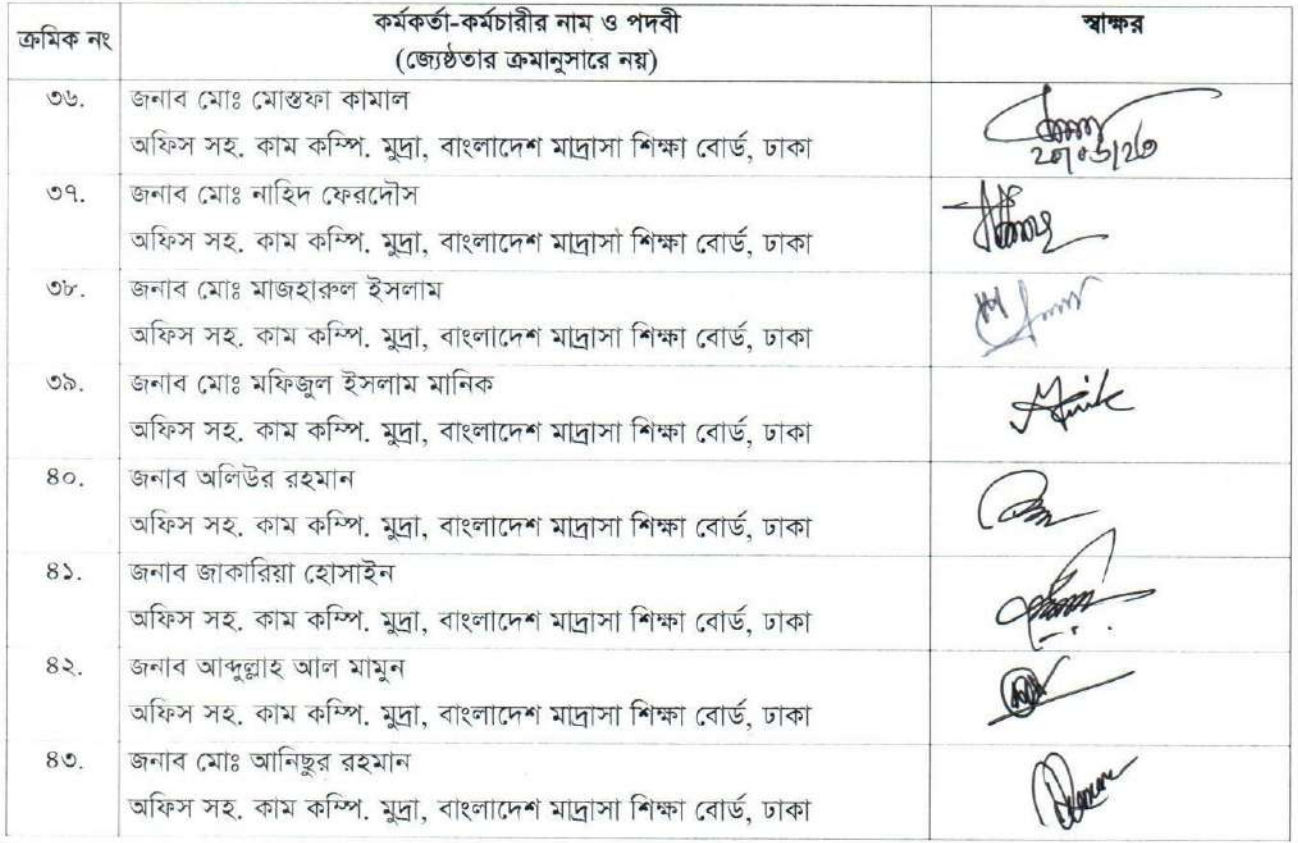 ক্রমিক নং
কর্মকর্তা-কর্মচারীর নাম ও পদবী
(জ্যেষ্ঠতার ক্রমানুসারে নয়)
স্বাক্ষর
৩৬.
জনাব মোঃ মোস্তফা কামাল
অফিস সহ. কাম কম্পি. মুদ্রা, বাংলাদেশ মাদ্রাসা শিক্ষা বোর্ড, ঢাকা
৩৭.
জনাব মোঃ নাহিদ ফেরদৌস
অফিস সহ. কাম কম্পি. মুদ্রা, বাংলাদেশ মাদ্রাসা শিক্ষা বোর্ড, ঢাকা
৩৮.
জনাব মোঃ মাজহারুল ইসলাম
অফিস সহ. কাম কম্পি. মুদ্রা, বাংলাদেশ মাদ্রাসা শিক্ষা বোর্ড, ঢাকা
৩৯.
জনাব মোঃ মফিজুল ইসলাম মানিক
অফিস সহ. কাম কম্পি. মুদ্রা, বাংলাদেশ মাদ্রাসা শিক্ষা বোর্ড, ঢাকা
৪০.
জনাব অলিউর রহমান
অফিস সহ. কাম কম্পি. মুদ্রা, বাংলাদেশ মাদ্রাসা শিক্ষা বোর্ড, ঢাকা
৪১.
জনাব জাকারিয়া হোসাইন
অফিস সহ. কাম কম্পি. মুদ্রা, বাংলাদেশ মাদ্রাসা শিক্ষা বোর্ড, ঢাকা
৪২.
জনাব আব্দুল্লাহ আল মামুন
অফিস সহ. কাম কম্পি. মুদ্রা, বাংলাদেশ মাদ্রাসা শিক্ষা বোর্ড, ঢাকা
৪৩.
জনাব মোঃ আনিছুর রহমান
অফিস সহ. কাম কম্পি. মুদ্রা, বাংলাদেশ মাদ্রাসা শিক্ষা বোর্ড, ঢাকা